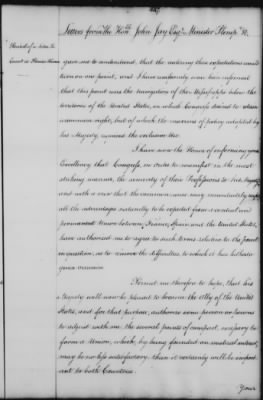 Letters from the Honble John Jay Esqr Minister Plenipo &c.
Sketch of a Letter to
Count de Florida Blanca
gave me to understand, that the
on our part, and I have uniformly ever been informed
that this point was the navigation of the Mississippi below the
territories of the United States, in which Congress desired to retain
common right, but of which the maxims of policy adopted by
his Majesty required the exclusive use.
I have now the Honor of informing your
Excellency that Congress, in order to manifest in the most
striking manner, the sincerity of their Professions to his Majesty,
and with a view that the common cause may immediately reap
all the advantages naturally to be expected from a cordial and
permanent Union between France, Spain and the United States,
have authorised me to agree to such terms relative to the point
in question, as to remove the difficulties to which it has hitherto
given occasion.
Permit me therefore to hope, that his
Majesty will now be pleased to become the Ally of the United
States, and for that purpose, authorise some person or persons
to adjust with me the several points of compact necessary to
form a Union, which, by being founded on mutual interest,
may be no less satisfactory, than it certainly will be import
ant to both Countries.
Your